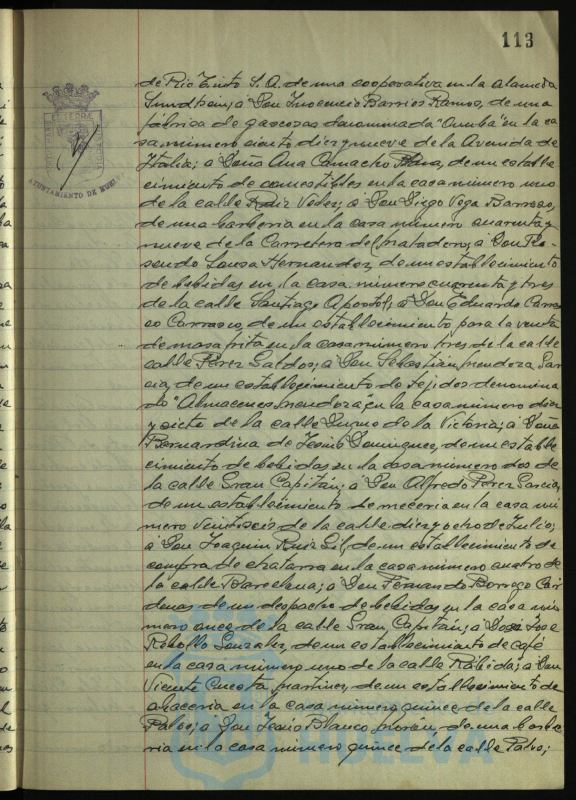 113
AYUNTAMIENTO DE HUELVA
de Rio Tinto S.A. de una cooperativa en la Alameda
Sundheim; a Don Inocencio Barrios Ramos, de una
fábrica de gaseosas denominada "Onuba" en la ca
sa número ciento diez y nueve de la Avenida de
Italia; a Doña Ana Camacho de un estable
cimiento de comestibles en la casa número uno
de la calle Ruiz Velez; a Don Diego Vega Barroso,
de una barberia en la casa número cuarenta y
nueve de la Carretera del Matadero; a Don Ro-
sendo Sousa Hernandez, de un establecimiento
de bebidas en la casa número cuarenta y tres
de la calle Santiago Apostol; a Don Eduardo Carras
co Carrasco, de un establecimiento para la venta
de masa frita en la casa número tres de la calle
calle Pérez Galdos; a Don Sebastián Mendoza Gar
cia, de un establecimiento de tejidos denomina
do "Almacenes Mendoza" en la casa número diez
y siete de la calle Duque de la Victoria; a Doña
Bernardina de Jesús Dominguez, de un estable
cimiento de bebidas en la casa número dos de
la calle Gran Capitán; a Don Alfredo Pérez Garcia,
de un establecimiento de en la casa nú
mero veintiseis de la calle diez y ocho de Julio;
a Don Joaquin Ruiz Gil, de un establecimiento de
compra de chatarra en la casa número cuatro de
la calle Barcelona; a Don Fernando Borrego Cár
denas de un despacho de bebidas en la casa nú
mero once de la calle Gran Capitán; a José
Rebollo Gonzalez, de un establecimiento de café
en la casa número uno de la calle Rábida; a Don
Vicente Cuesta Martinez, de un establecimiento de
abaceria en la casa número quince de la calle
Palos; a Don Jesús Blanco Morán, de una barbe
ria en la casa número quince de la calle Palos;
HUELVA